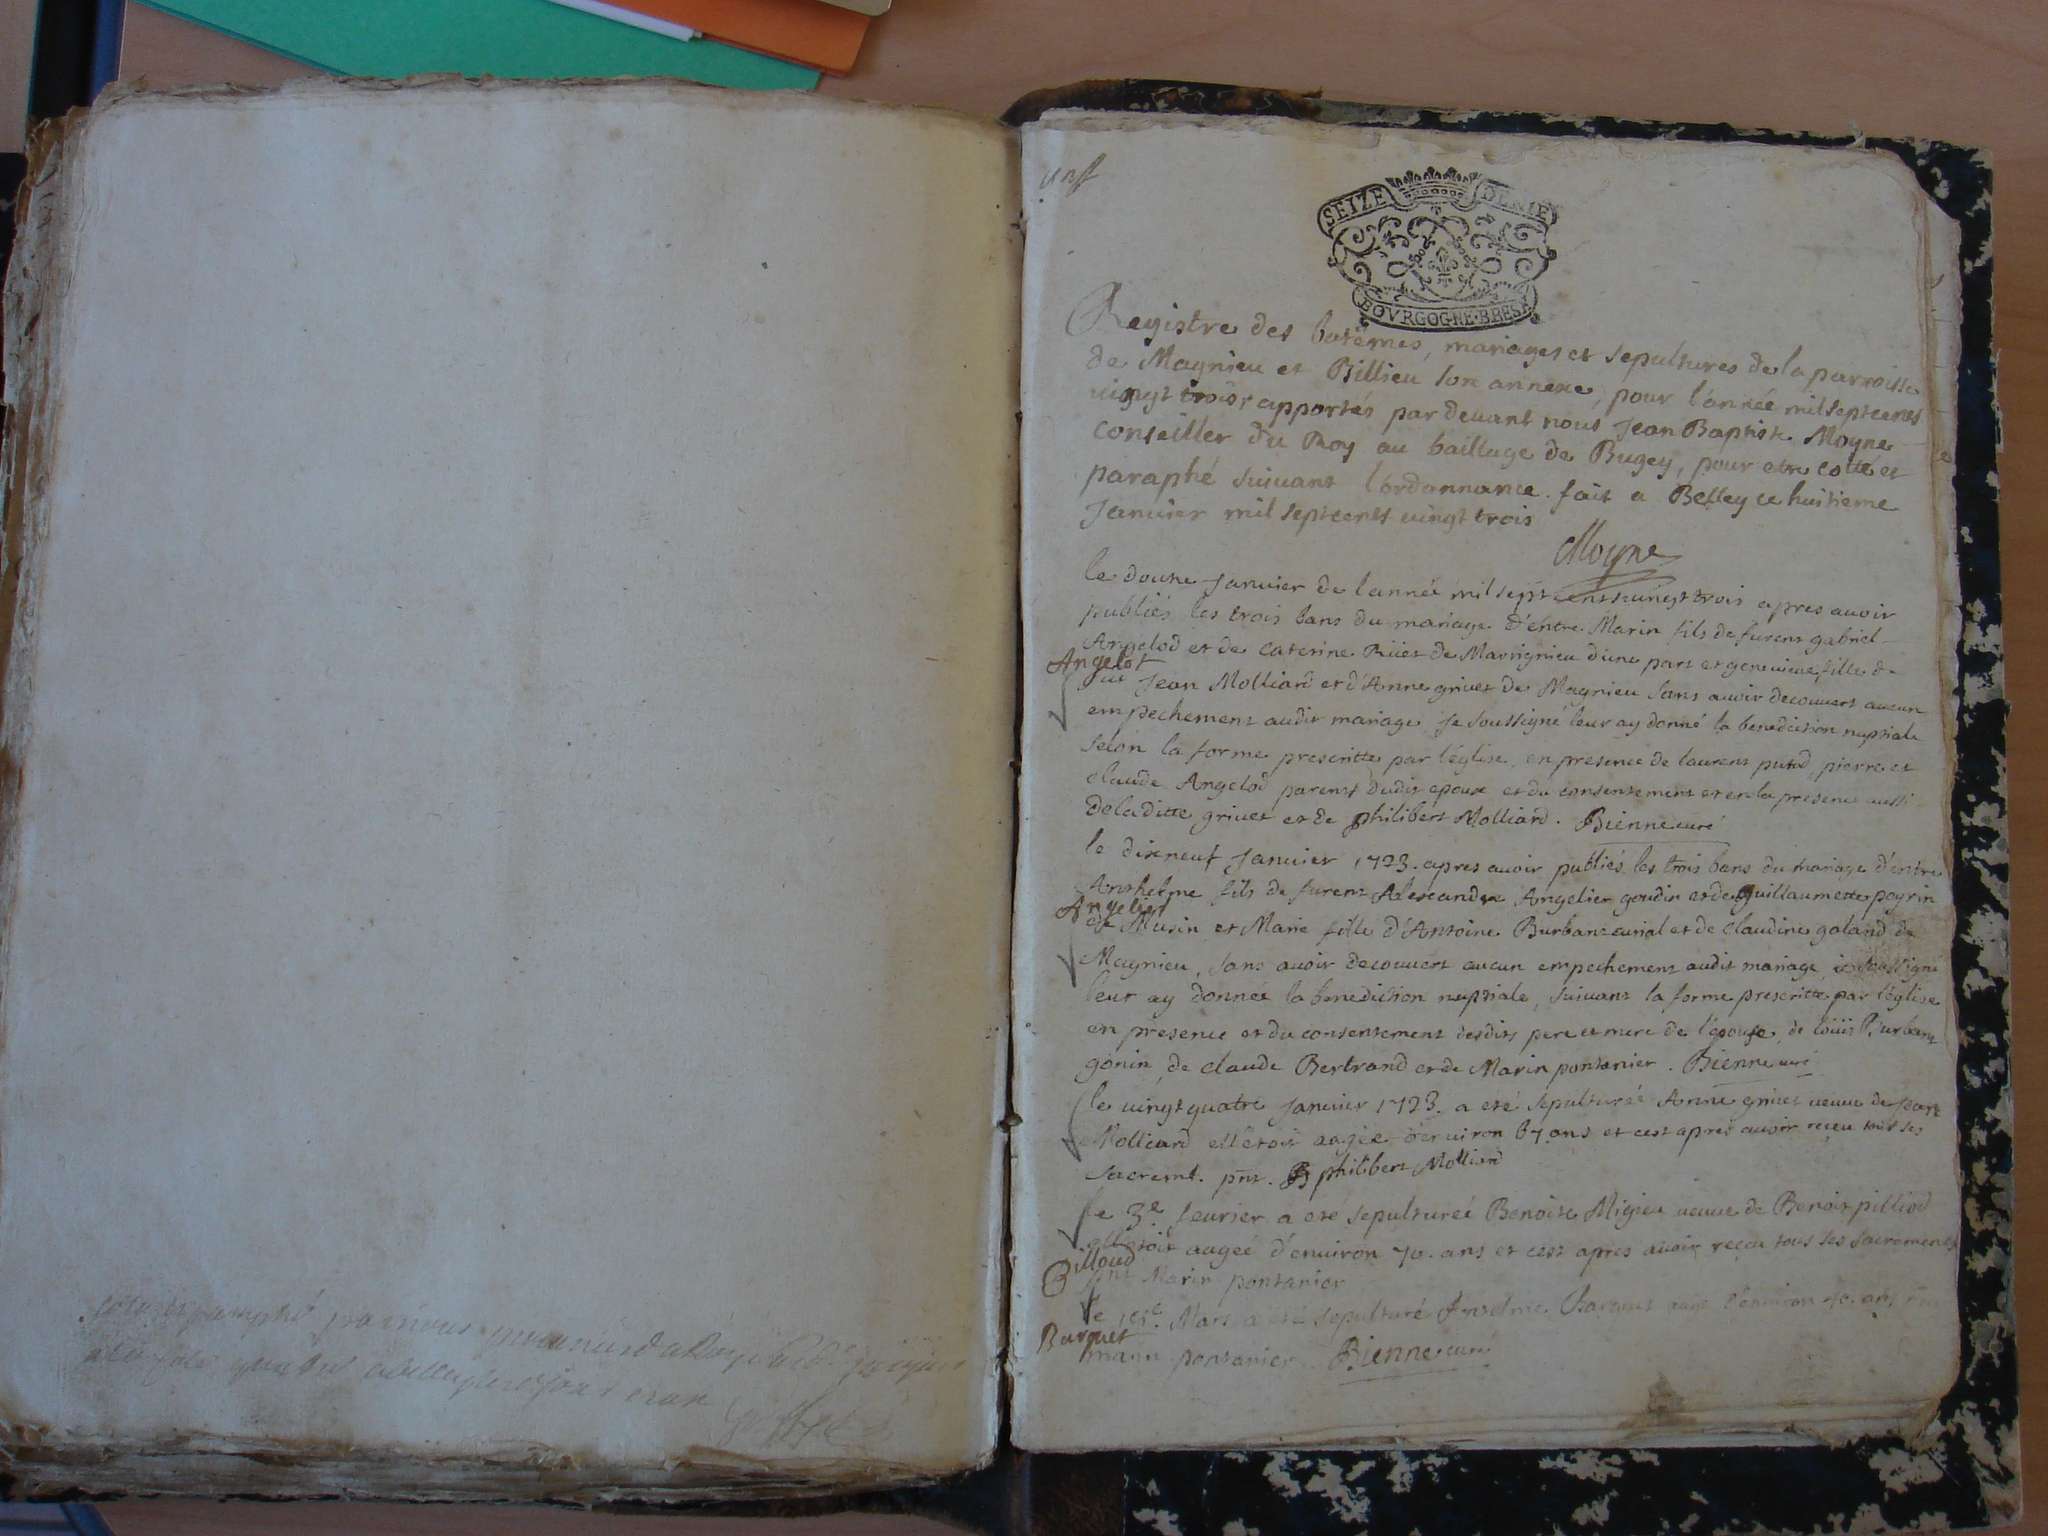 SEIZE DENIE
BOVRGOGNE·BRESS
Registre des batêmes, mariages et sepultures de la parroisse
de Magnieu et Billieu son annexe, pour l'année mil sept cents
vingt trois, apportés par devant nous Jean Baptiste Moyne
conseiller du Roy au bailluge de Bugey, pour etre cotté et
paraphé suivant l'ordonnance. fait a Belley ce huitieme
Janvier mil sept cents vingt trois
Moyne
le douze Janvier de l'année mil sept cents vingt trois apres avoir
publiés les trois bans du mariage d'entre Marin fils de furent gabriel
Angelod et de Caterine Rüet de Marignieu d'une part et genevieve fille de
Angelot
Jean Molliard et d'Anne grivet de Magnieu sans avoir decouvert aucun
empechement audit mariage je soussigné leur ay donné la benediction nuptiale
selon la forme prescritte par l'église, en presence de laurent putod, pierre et
claude Angelod parens dudit epoux et du consentement et en la presence aussi
de laditte grivet et de philibert Molliard. Bienne curé
le dixneuf Janvier 1723. apres avoir publiés les trois bans du mariage d'entre
Anthelme fils de furent Alexandre Angelier goudin et de guillaumette peyrin
Angelier
de Musin et Marie fille d'Antoine Burbanc curial et de claudine goland de
Magnieu, sans avoir decouvert aucun empechement audit mariage je soussigné
leur ay donnée la benediction nuptiale, suivant la forme prescritte par l'église
en presence et du consentement desdits pere et mere de l'epouse, de loüis Burbanc
gonin, de claude Bertrand et de Marin pontanier. Bienne curé
le vingt quatre Janvier 1723. a eté sepulturée Anne grivet veuve de Jean
Molliard ell'etoit aagée d'environ 67 ans et cest apres avoir reçeu tous ses
sacremt. pnt. philibert Molliard
le 3e fevrier a eté sepulturée Benoite Migieu veuve de Benoit pilliod
ell'etoit aagée d'environ 70. ans et cest apres avoir reçeu tous ses sacrements
Billoud
pnt Marin pontanier
Mars a eté sepulturé Anselme Barquet aagé d'environ 40. ans
Barquet
marin pontanier. Bienne curé